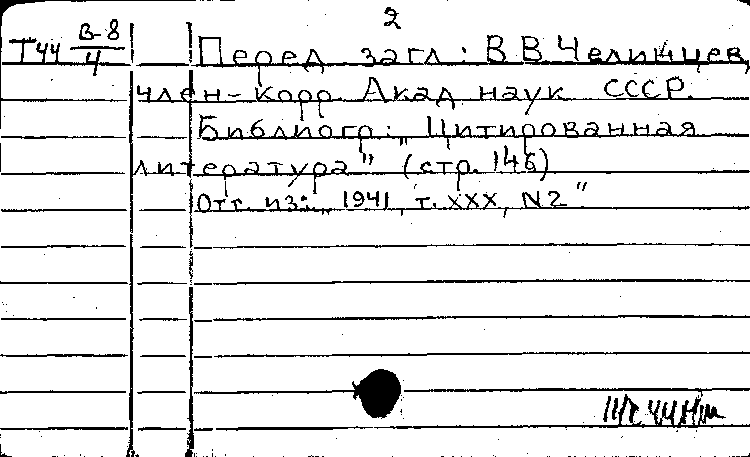 2
Т44 В-8/4 Перед загл.: В.В. Челинцев,
член-корр. Акад наук СССР.
Библиогр.: „Цитированная
литература" (стр. 146)
Отт. из: „ 1941, т. XXX, N2"